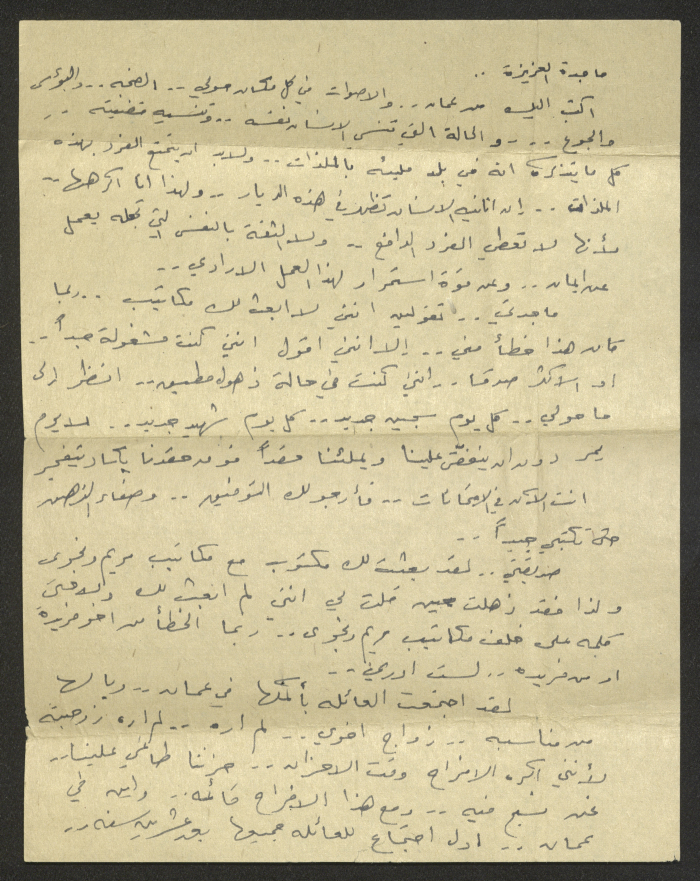 ماجدة العزيزة ..
اكتب اليك من عمان .. والاصوات في كل مكان حولي .. الضجه .. والبؤس
والجوع .. .. والحالة التي تنسي الانسان نفسه .. وتنسيه قضيته ..
كل ما يتذكره انه في بلد مليئه بالملذات .. ولابد ان يتمتع الفرد بهذه
الملذات .. ان انانيه الانسان تظهر في هذه الديار .. ولهذا انا اكرهها ..
لأنها لا تعطي الفرد الدافع .. ولا الثقة بالنفس التي تجعله يعمل
عن ايمان .. وعن قوة استمرار لهذا العمل الارادي ..
ماجدتي .. تقولين انني لا ابعث لك مكاتيب .. ربما
كان هذا خطأ مني .. الا انني اقول انني كنت مشغولة جداً ..
او الاكثر صدقا .. انني كنت في حالة ذهول مطبق .. انظر الى
ما حولي .. كل يوم سجين جديد .. كل يوم شهيد جديد .. لا يوم
يمر دون ان ينغص علينا ويملئنا حقداً فوق حقدنا
انت الآن في الامتحانات .. فأرجو لك التوفيق .. وصفاء الذهن
حتى تكتبي جيداً ..
صديقتي .. لقد بعثت لك مكتوب مع مكاتيب مريم ونجوى
ولذا فقد ذهلت حين قلت لي انني لم ابعث لك
كلمه على خلف مكاتيب مريم ونجوى .. ربما الخطأ من اخو فريدة
او من فريده .. لست ادري ..
لقد اجتمعت العائله بأكملها في عمان .. ويا لها
من مناسبه .. زواج اخوي .. لم اره .. لم ار زوجته
لأنني اكره الافراح وقت الاحزان .. حزننا طاغي علينا ..
نحن نسبح فيه .. ومع هذا الافراح قائمه .. واين في
عمان .. اول اجتماع للعائله جميعها بعد عشرين سنه ..